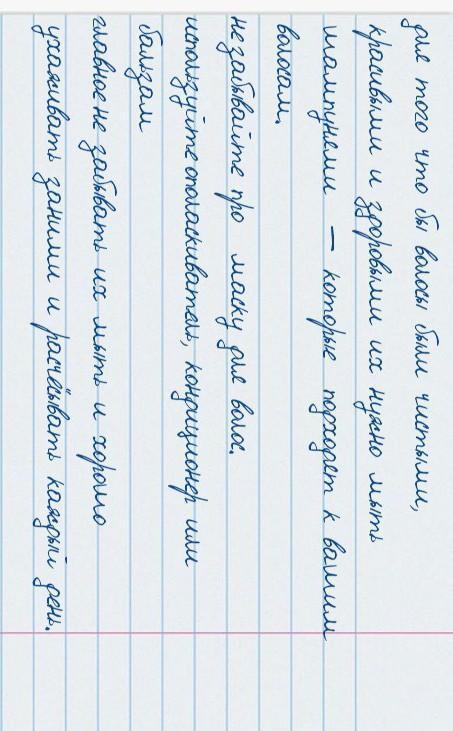 для того что бы волосы были чистыми,
красивыми и здоровыми их нужно мыть
шампунями — которые подходят к вашим
волосам.
не забывайте про маску для волос.
используйте ополаскиватель, кондиционер или
бальзам
главное не забывать их мыть и хорошо
ухаживать заними и расчёсывать каждый день.